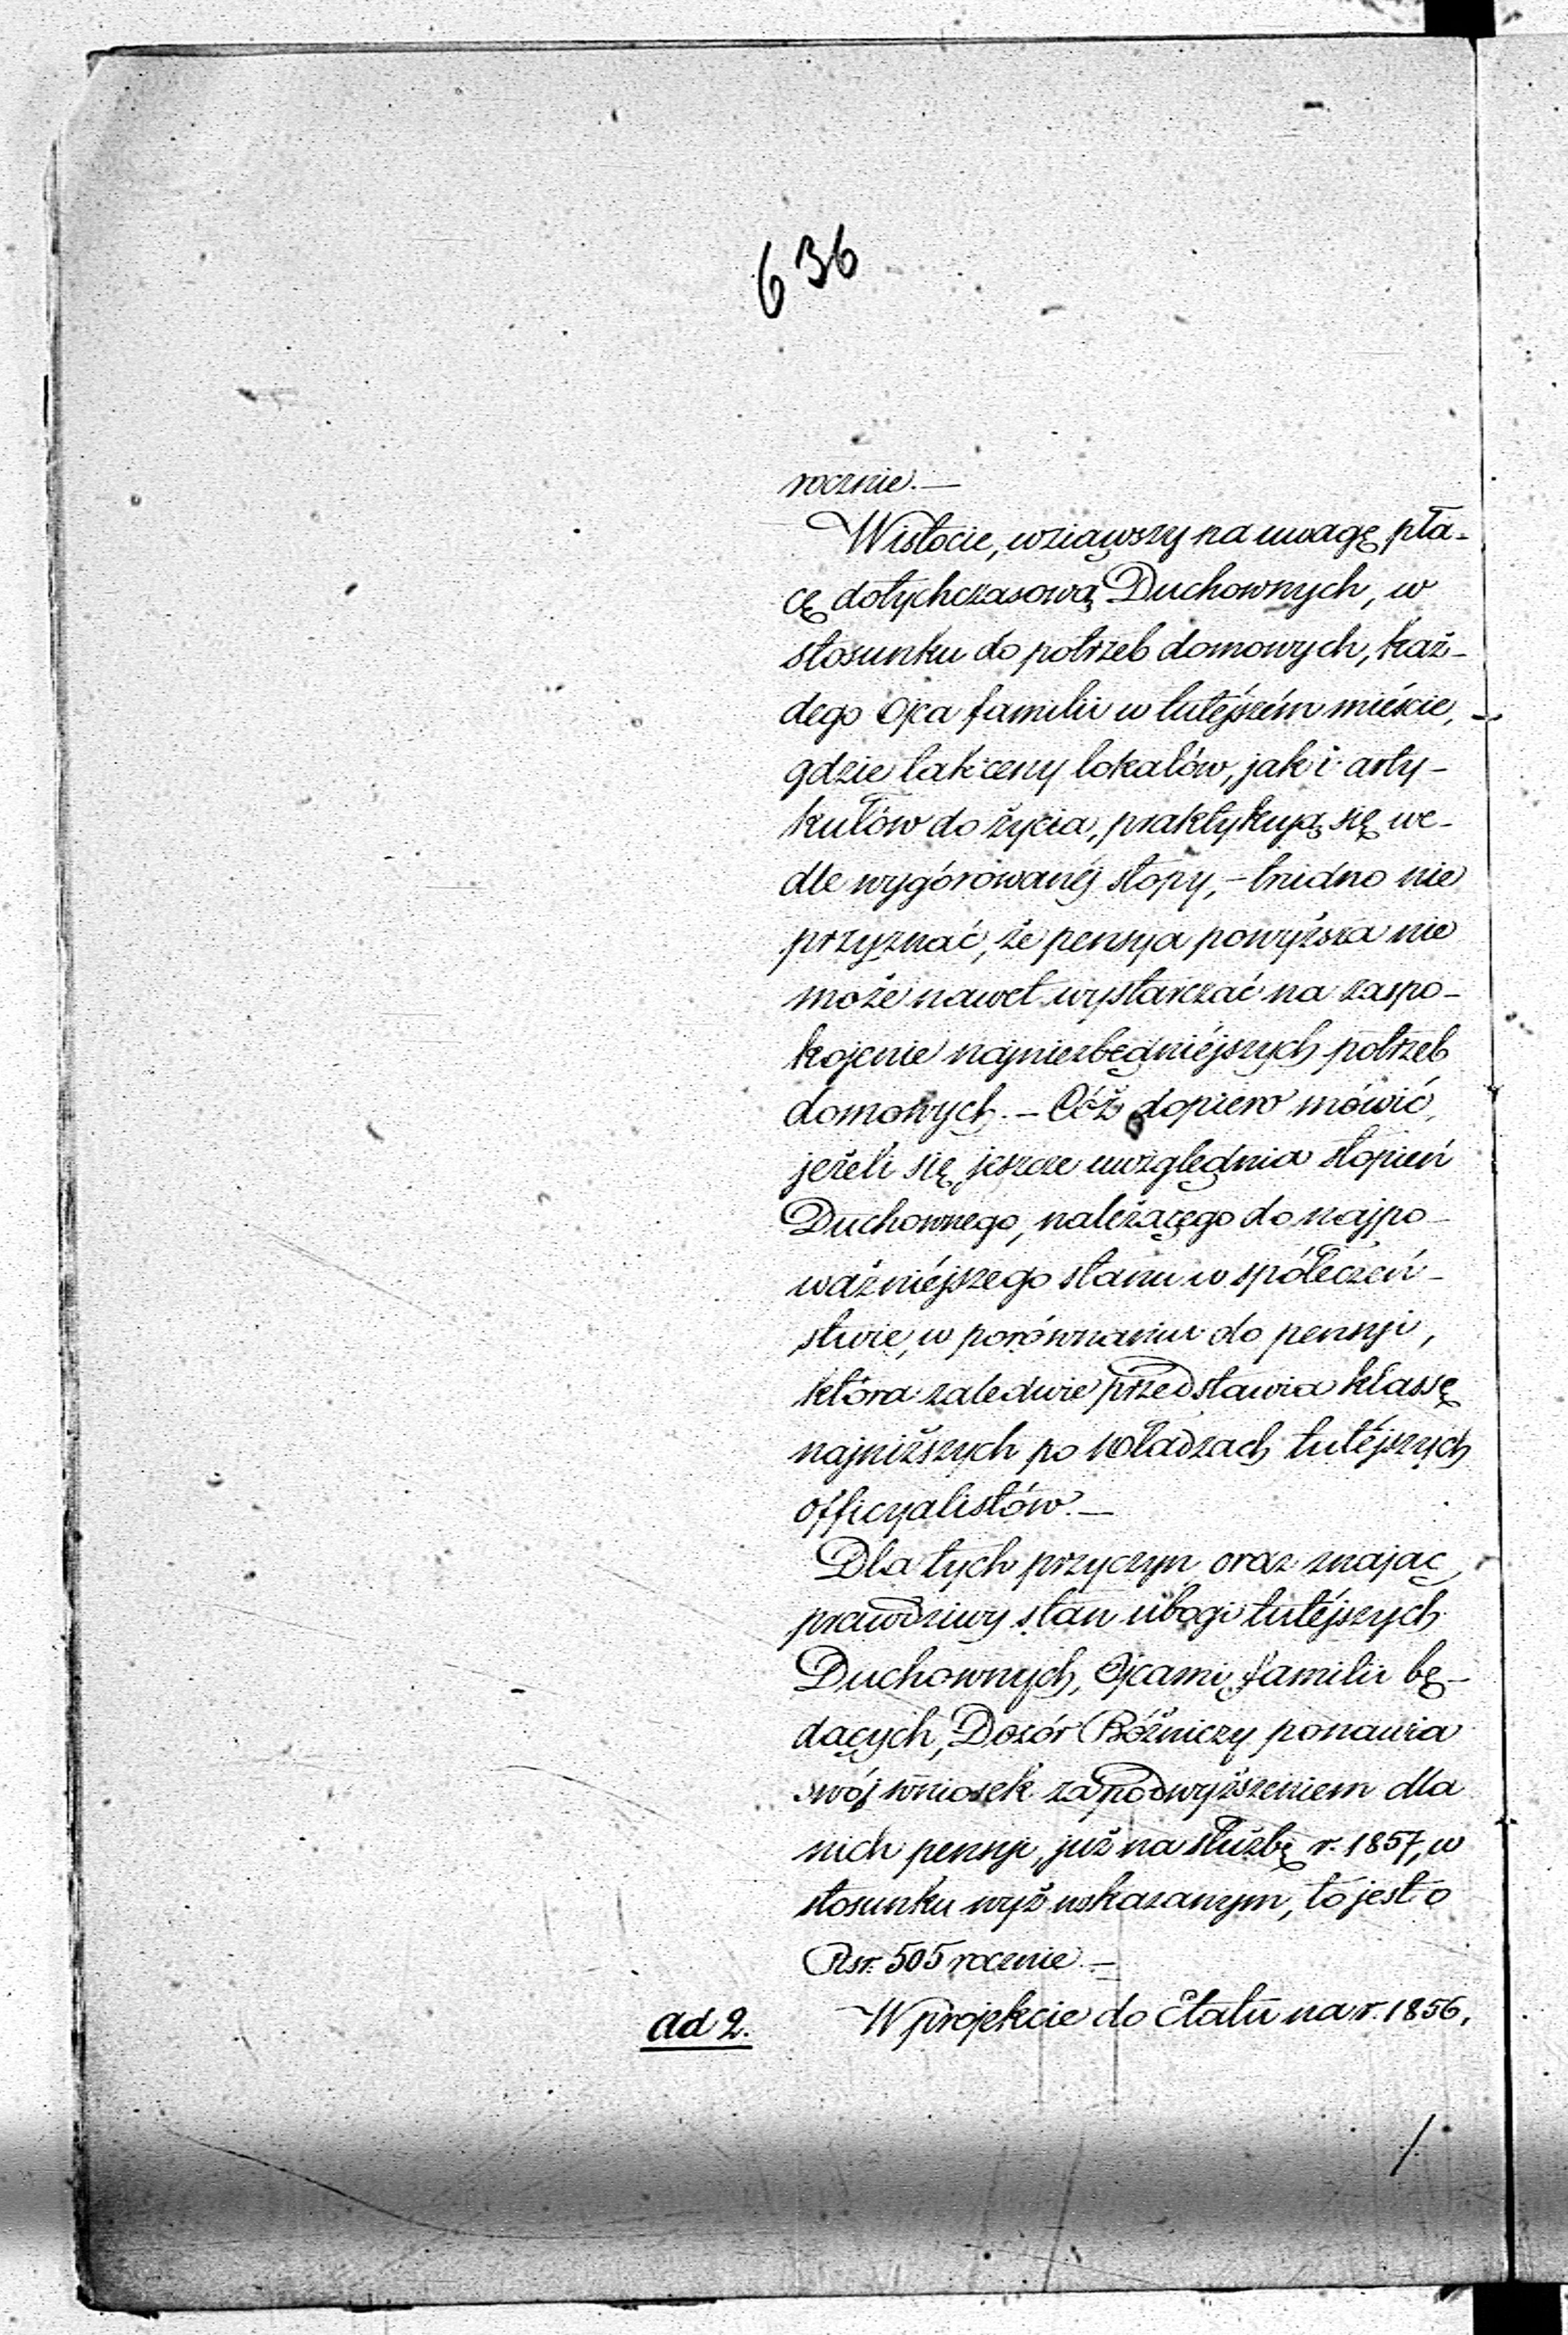 636
rocznie.—
W istocie, wziąwszy na uwagę pła-
cę dotychczasową Duchownych, w
stosunku do potrzeb domowych, każ-
dego Ojca familii w tutéjszém mieście,
gdzie tak ceny lokalów, jak i arty-
kułów do życia, praktykują się we-
dle wygórowanéj stopy,— trudno nie
przyznać, że pensja powyższa nie
może nawet wystarczać na zaspo-
kojenie najniezbędniéjszych potrzeb
domowych.— Cóż dopiero mówić,
jeżeli się jeszcze uwzględnia stopień
Duchownego, należącego do najpo-
ważniéjszego stanu w spółeczeń-
stwie, w porównaniu do pensji,
która zaledwie przedstawia klassę
najniższych po władzach tutéjszych
officyalistów.—
Dla tych przyczyn oraz znając
prawdziwy stan ubogi tutéjszych
Duchownych, Ojcami familii bę-
dących, Dozór Bóżniczy ponawia
swój wniosek za podwyższeniem dla
nich pensji, już na służbę r. 1857, w
stosunku wyż wskazanym, to jest o
Rsr. 505 rocznie.—
Ad 2. W projekcie do Etatu na r. 1856,
/